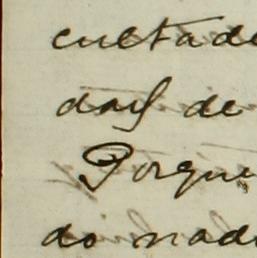 cultade
das de
Porque
do nad